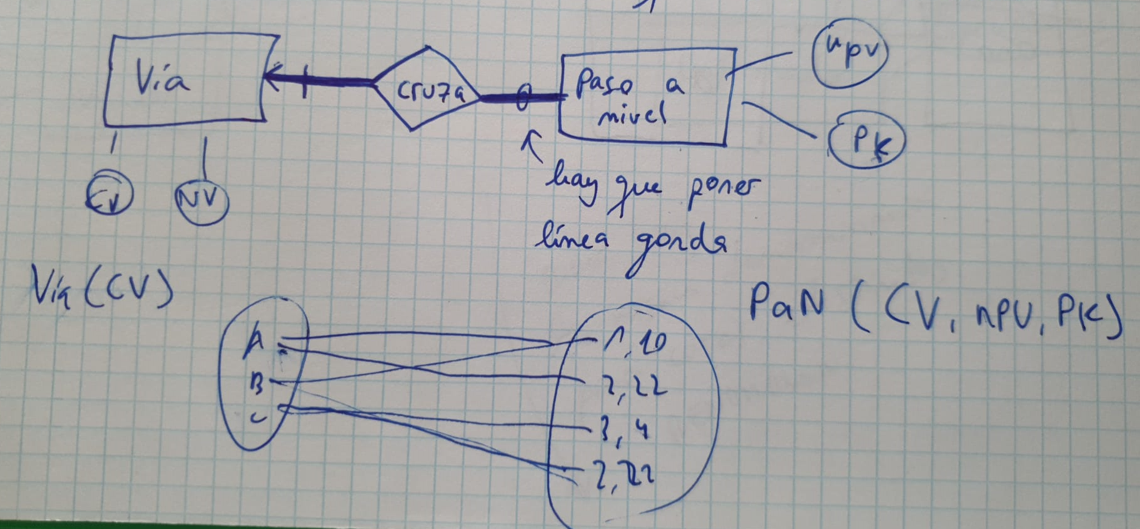 Vía
cruza
Paso a
nivel
npv
PK
CV
NV
hay que poner
línea gorda
Vía (CV)
PaN (CV, nPV, PK)
A
B
C
1, 10
2, 22
3, 4
2, 22